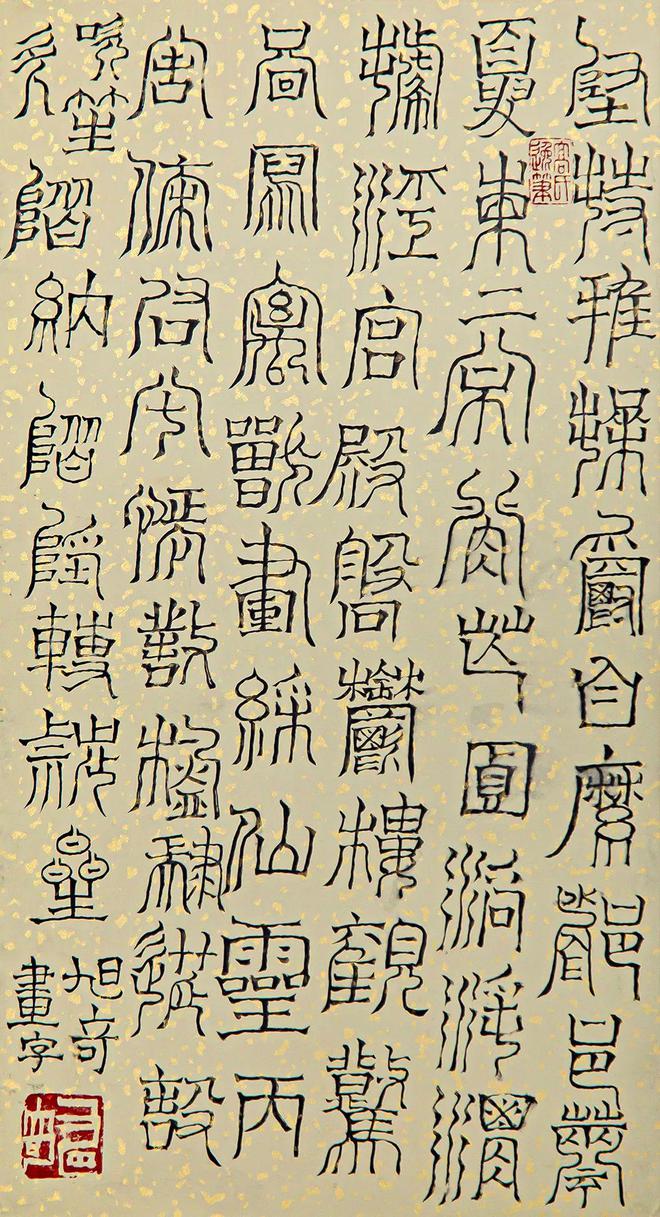 堅持雅操爵自縻都邑華
夏東二京背邙面洛浮渭
據涇宮殿盤鬱樓觀驚
圖寫禽獸畫綵仙靈丙
舍傍啟甲帳對楹肆筵設
吹笙升階納轉疑星
旭奇
畫字